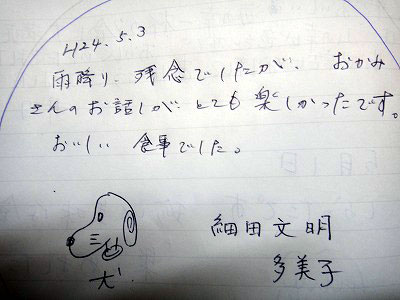 H24.5.3
雨降り、残念でしたが、おかみ
さんのお話しがとても楽しかったです。
おいしい 食事でした。
細田文明
多美子
犬!